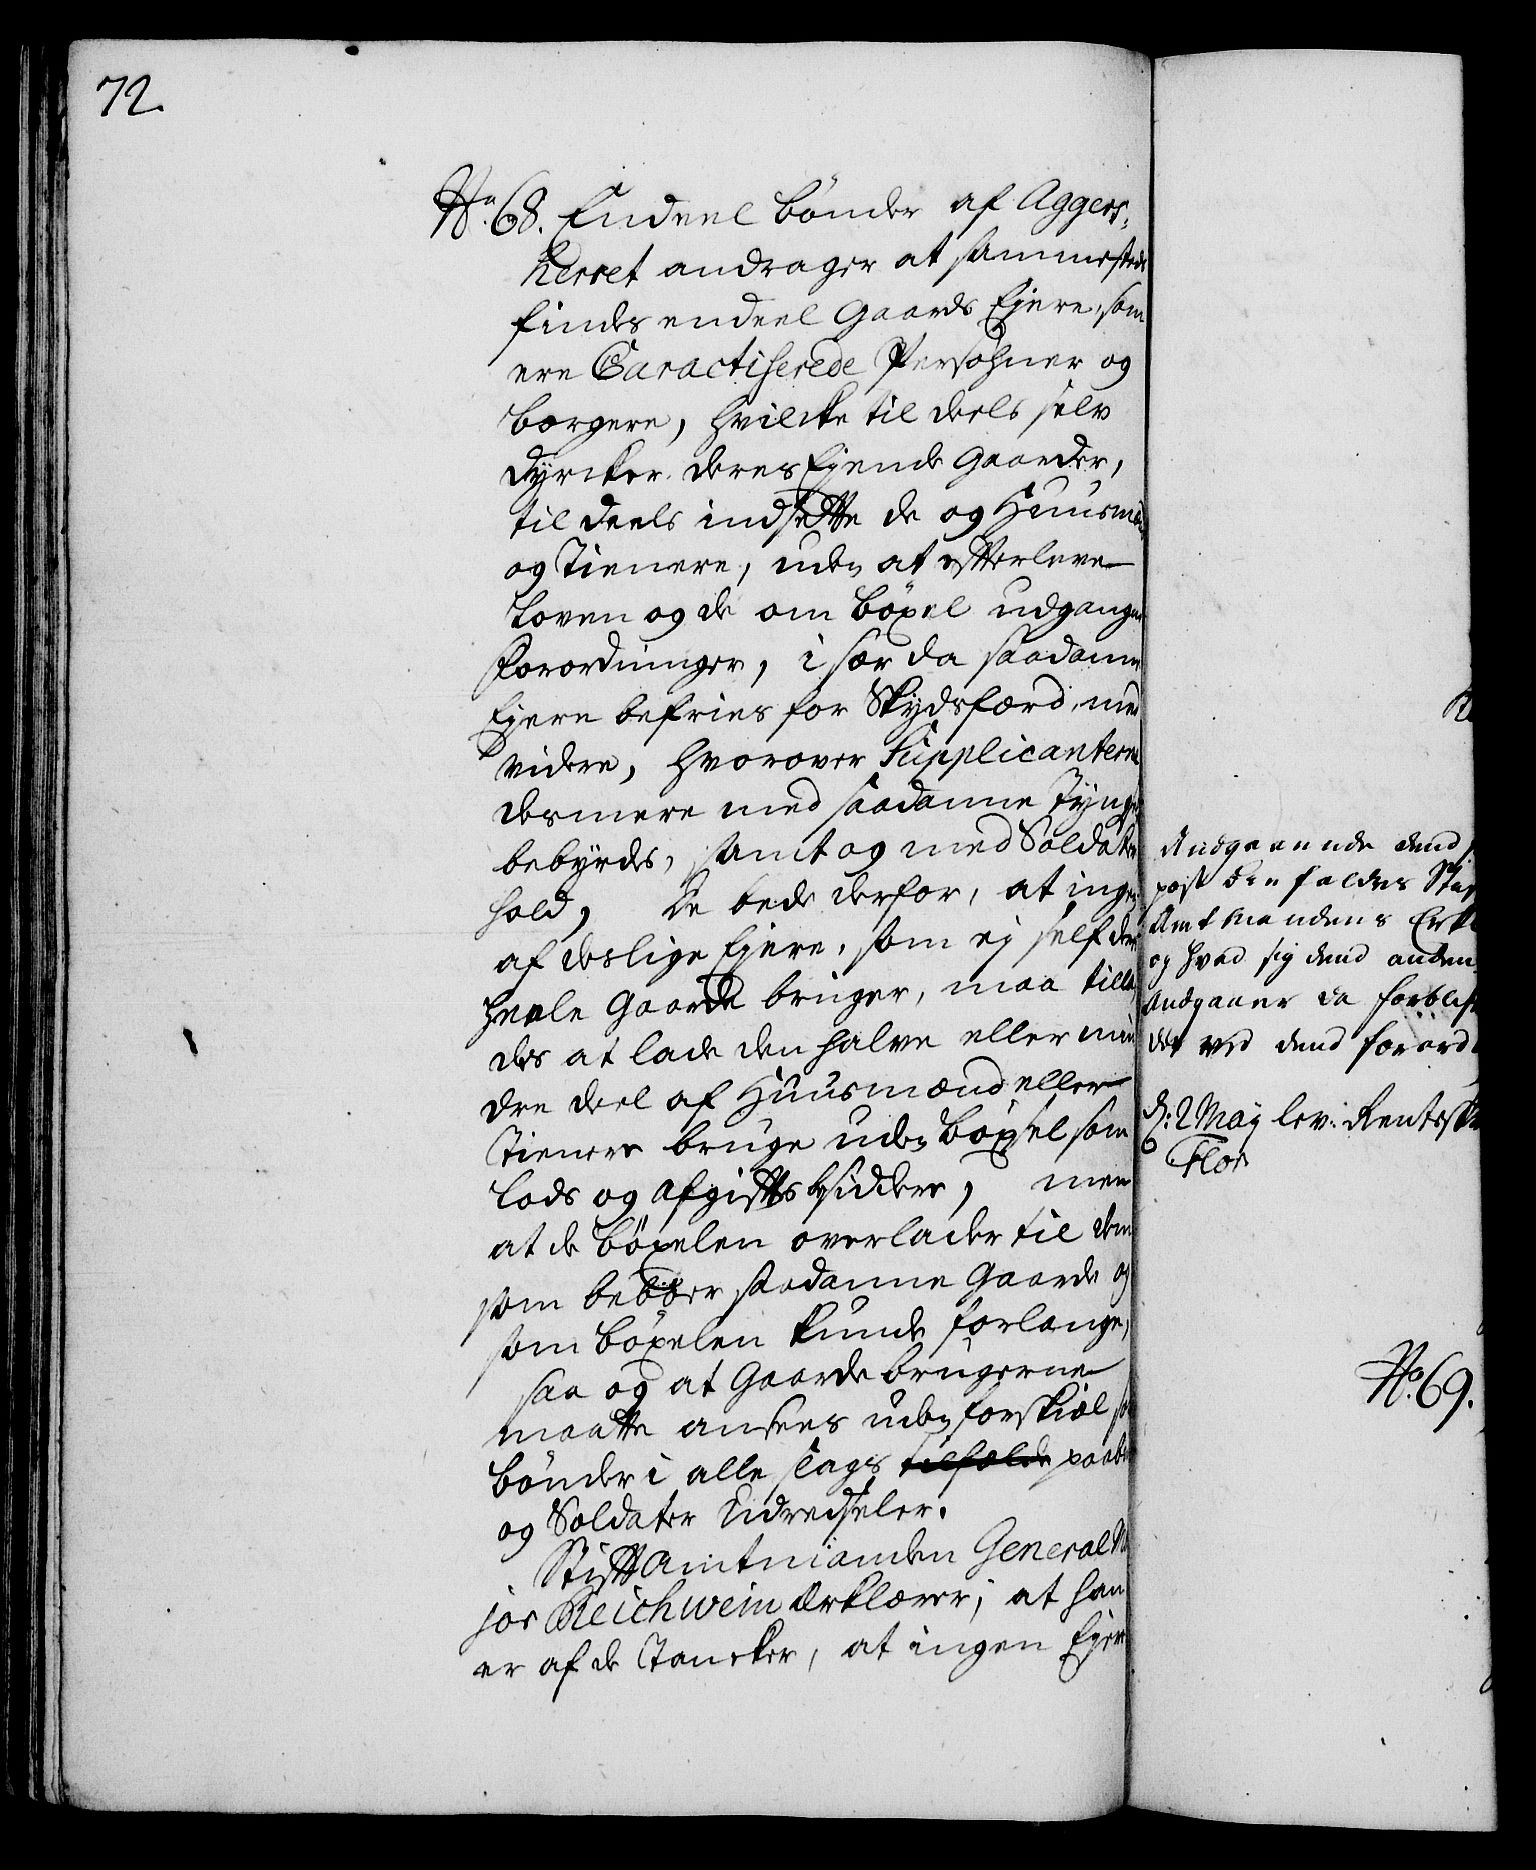 72.
No. 68. Endeel bönder af Aggers,
herret andrager at sammesteds
findes endeel Gaards Ejere, som
ere Caractiserede Persohner og
borgere, hvilcke til deels selv
dyrcker deres Ejende Gaarder,
til deels indsette de og Huusmænd
og Tienere, uden at efterleve
Loven og de om böxel udgangne
Forordninger, i sær da saadanne
Ejere befries for Skydsferd, med
videre, hvorover Supplicanterne
desmere med saadanne Tynge
bebyrdes, samt og med Soldater
hold, De bede derfor, at ingen
af deslige Ejere, som ej self deres
heele Gaarde bruger, maa tilla,
des at lade den halve eller min
dre deel af Huusmænd eller
Tienere bruge uden böxsel som
lods og afgifts bsiddere, men
at de böxelen overlader til dem
som beboer saadanne Gaarde og
som böxelen kunde forlange,
saa og at Gaarde brugerne
maatte ansees uden forskiæl som
bönder i alle slags tilfælde paabud
og Soldater Udredseler.
Stiftamtmanden General Ma
jor Reichwein Erklærer, at han
er af de Tancker, at ingen Ejer
Andgaaende dend
post bee faldes Stift
Amtmandens Erkl
og hvad sig dend anden
andgaaer da forblif
det ved dend forord
d: 2 May lev: Rentesk
Flor
No. 69.